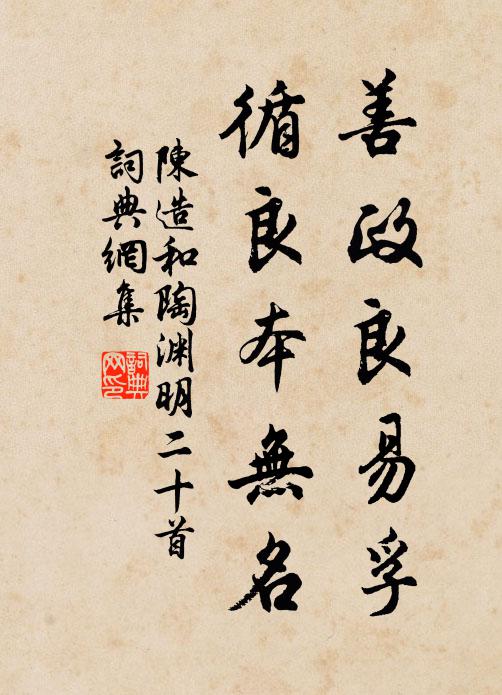 善政良易孚
循良本無名
陳造和陶淵明二十首
詞典網集
詞典網印